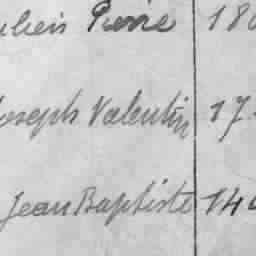 Pierre 18
Joseph Valentin 17
Jean Baptiste 14